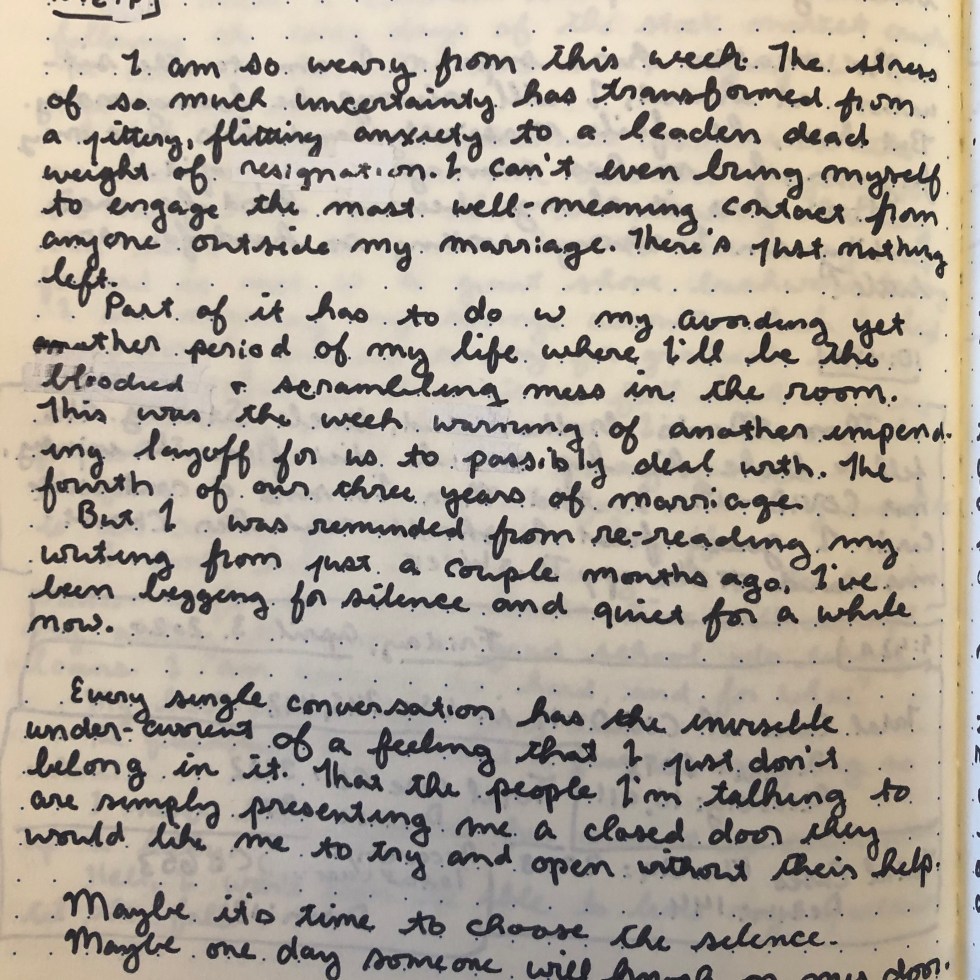 I am so weary from this week. The stress
of so much uncertainty has transformed from
a jittery, flitting anxiety to a leaden dead
weight of resignation. I can't even bring myself
to engage the most well-meaning contact from
anyone outside my marriage. There's just nothing
left.
Part of it has to do w my avoiding yet
another period of my life where I'll be the
bloodied & scrambling mess in the room.
This was the week warning of another impend-
ing layoff for us to possibly deal with. The
fourth of our three years of marriage.
But I was reminded from re-reading my
writing from just a couple months ago, I've
been begging for silence and quiet for a while
now.
Every single conversation has the invisible
under-current of a feeling that I just don't
belong in it. That the people I'm talking to
are simply presenting me a closed door they
would like me to try and open without their help.
Maybe it's time to choose the silence.
Maybe one day someone will knock on my door.